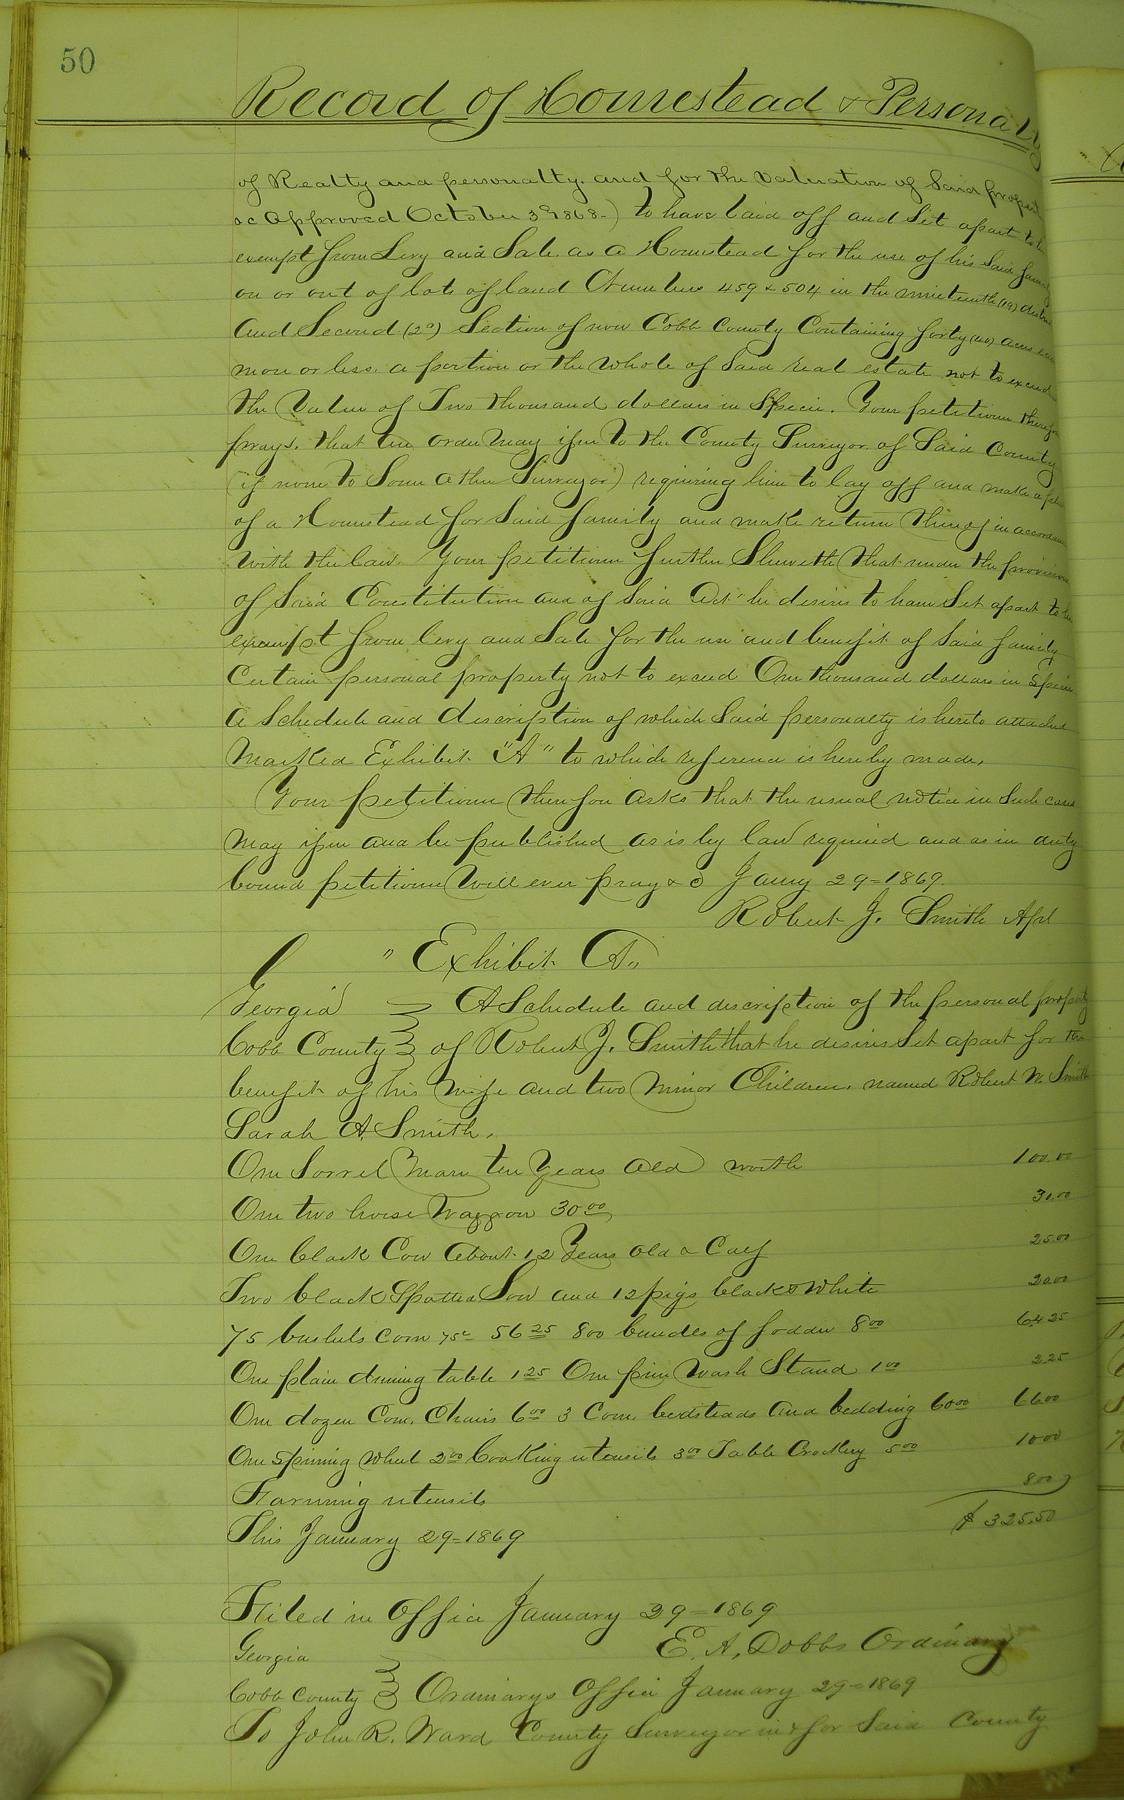 50
Record of Homestead & Personalty
of Realty and personalty. and for the valuation of Said propert
&c Approved October 3d 1868.) to have laid off and Set apart to be
exempt from Levy and Sale as a Homestead for the use of his Said family
on or out of lots of land Numbers 459 & 504 in the nineteenth (19) district
and Second (2d) Section of now Cobb County Containing forty (40) acres each
more or less. a portion or the whole of Said real estate not to exceed
the Value of Two thousand dollars in Specie. Your petitioner therefore
prays. that an order May issue to the County Surveyor of Said County
(if none to Some other Surveyor) requiring him to lay off and make a plat
of a Homestead for Said family and make return thereof in accordance
with the law. Your petitioner further Sheweth that under the provisions
of Said Constitution and of Said Act he desires to have Set apart to be
exempt from levy and Sale for the use and benefit of Said family
Certain personal property not to exceed One thousand dollars in Specie
a Schedule and discription of which Said personalty is hereto attached
Marked Exhibit "A" to which reference is hereby made,
Your petitioner therefore asks that the usual notice in Such cases
May issue and be published as is by law required and as in duty
bound petitioner Will ever pray &c Jany 29=1869.
Robert J. Smith Apl
" Exhibit A"
Georgia } A Schedule and discription of the personal property
Cobb County } of Robert J. Smith that he desires Set apart for the
benefit of his wife and two Minor Children. named Robert W. Smith
Sarah A. Smith.
One Sorrel Mare ten Years Old worth 100.00
One two horse Waggon 30.00 30.00
One black Cow About 12 Years old & Calf 25.00
Two black Spotted Sow and 12 pigs black & White 20.00
75 bushels corn 75c 56 25 800 bundles of fodder 8 00 64 25
One plain dining table 1 25 One pine Wash Stand 1 00 2 25
One dozen Com. Chairs 6 00 3 Com. bedsteads and bedding 60 00 66 00
One Spinning Wheel 2 00 Cooking utensils 3 00 Table Crockery 5 00 10 00
Farming utensils 8 00
This January 29=1869 $ 325.50
Filed in Office January 29=1869
Georgia } E. A. Dobbs Ordinary
Cobb County } Ordinarys Office January 29=1869
To John R. Ward County Surveyor in & for Said County